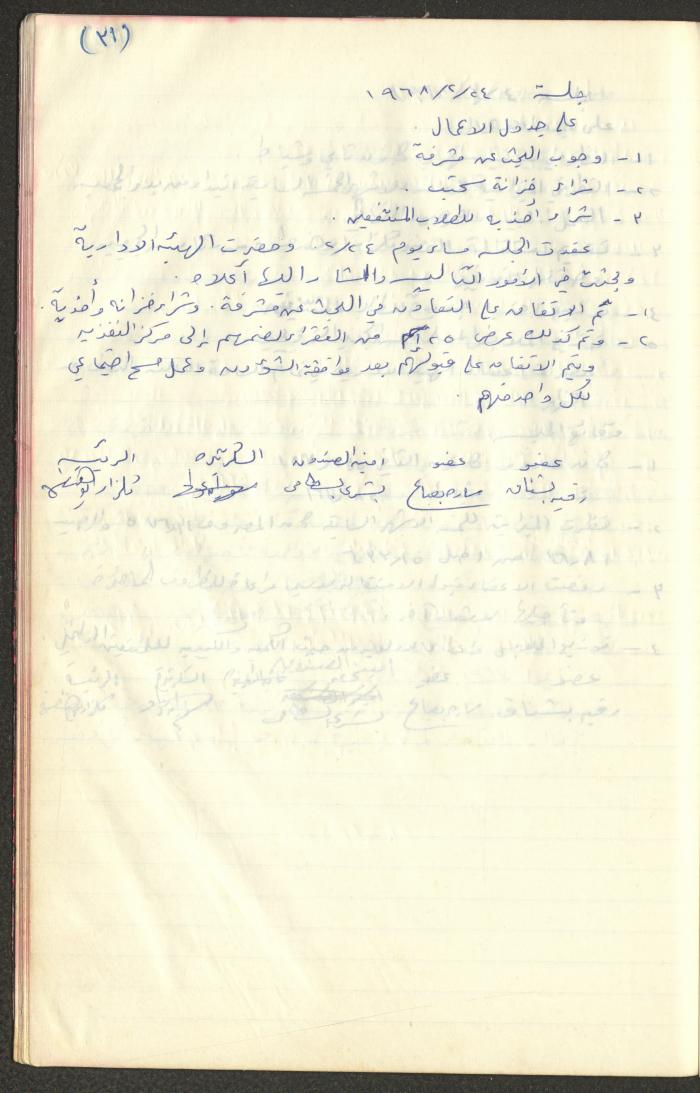 (٣١)
جلسة ٢٤/٢/١٩٦٨
على جدول الاعمال .
١- وجوب البحث عن مشرفة
٢- شراء خزانة مكتب
٣- شراء أحذية للطلاب المنتفعين .
عقدت الجلسة مساء يوم ٢٤/٢ وحضرت الهيئة الادارية
وبحثت في الأمور التالية والمشار اليها أعلاه .
١- تم الاتفاق على التعاون في البحث عن مشرفة . وشراء خزانه وأحذية .
٢- وتم كذلك عرض ٢٥ من الفقراء لضمهم إلى مركز التغذية
ويتم الاتفاق على قبولهم بعد موافقة الشؤون وعمل مسح اجتماعي
لكل واحد منهم .
عضو عضو امينة الصندوق السكرتيره الرئيسه
رقيه بشناق ساره بصاع بشرى بسطامي